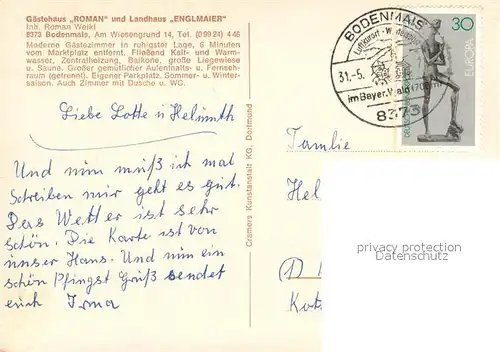 Gästehaus „ROMAN" und Landhaus „ENGLMAIER"
Inh. Roman Weikl
8373 Bodenmais, Am Wiesengrund 14, Tel. (0 99 24) 4 46
Moderne Gästezimmer in ruhigster Lage, 6 Minuten
vom Marktplatz entfernt. Fließend Kalt- und Warm-
wasser, Zentralheizung, Balkone, große Liegewiese
u. Sauna. Großer gemütlicher Aufenthalts- u. Fernseh-
raum (getrennt). Eigener Parkplatz. Sommer- u. Winter-
saison. Auch Zimmer mit Dusche u. WC.
Liebe Lotte u Helmuth
Und nun muß ich mal
Schreiben mir geht es gut.
Das Wetter ist sehr
schön. Die Karte ist von
unser Hans. Und nun ein
schön Pfingst Gruß sendet
euch Irma
Cramers Kunstanstalt KG, Dortmund
BODENMAIS
Luftkurort
31.-5.
im Bayer. Wald (700m)
8373
30
EUROPA
Familie
Hel
privacy protection
Datenschutz